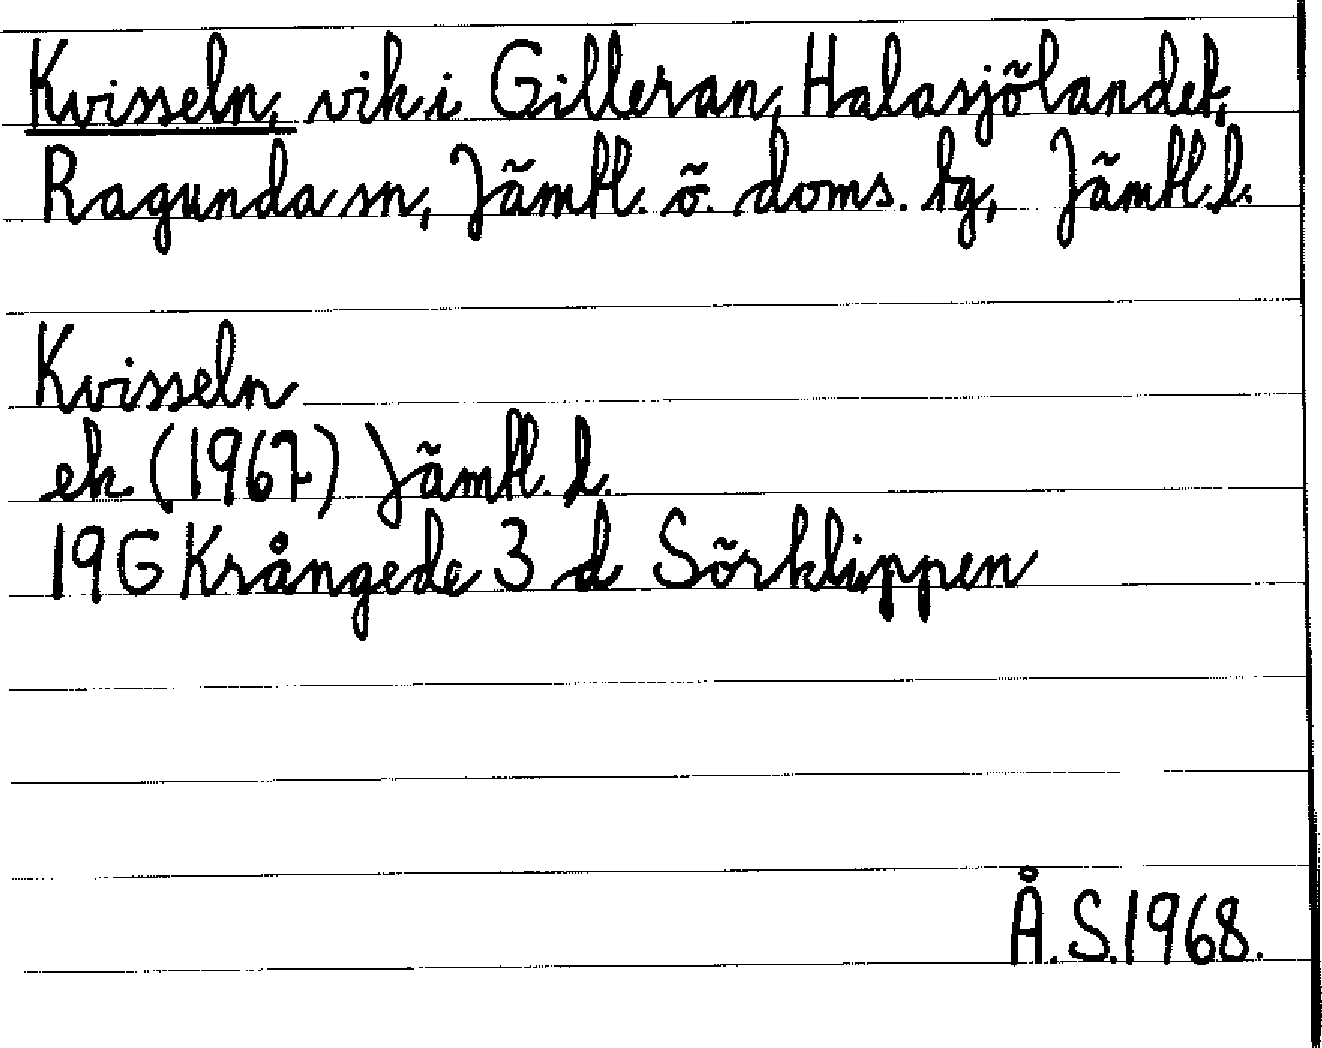 Kvisseln, vik i Gilleran, Halasjölandet,
Ragunda sn, Jämtl. ö. doms. tg, Jämtl. l.
Kvisseln
ek (1967) Jämtl. l.
19G Krångede 3 d Sörklippen
Å.S. 1968.